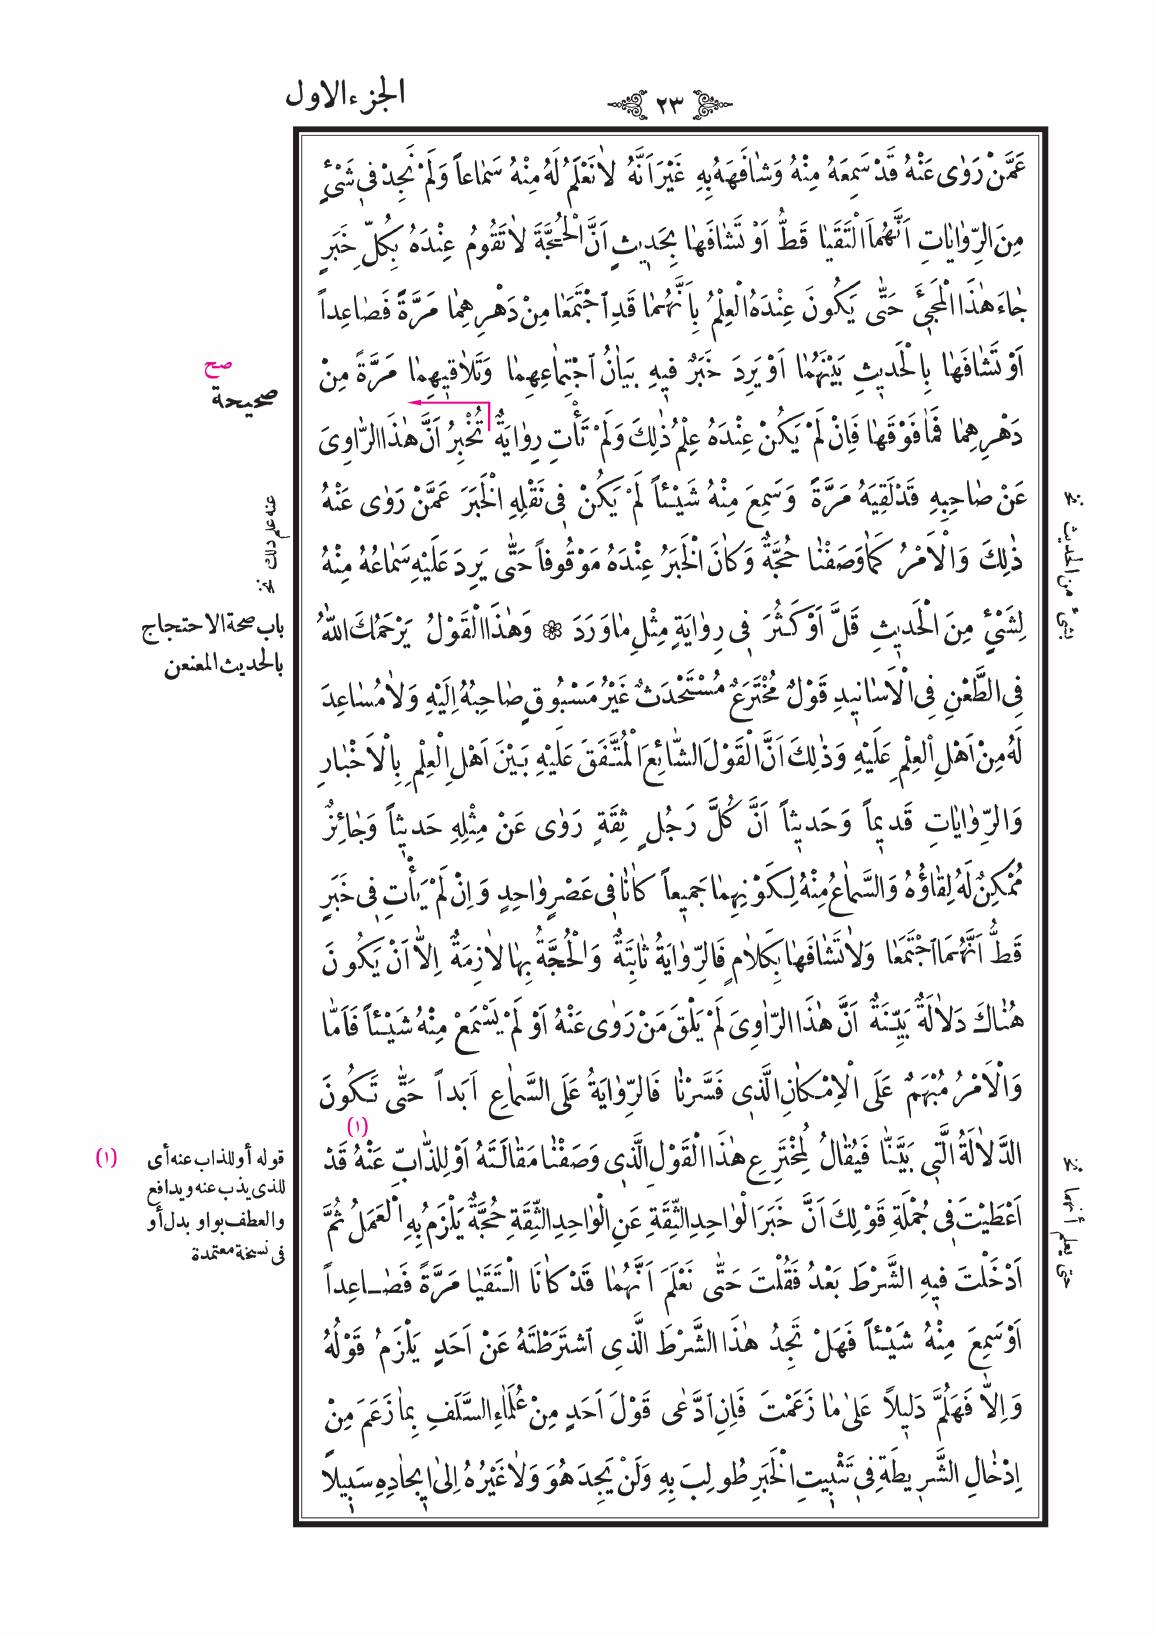 الجزء الاول
٢٣
عَمَّنْ رَوٰى عَنْهُ قَدْ سَمِعَهُ مِنْهُ وَشٰافَهَهُ بِهِ غَيْرَ اَنَّهُ لاٰ نَعْلَمُ لَهُ مِنْهُ سَمٰاعاً وَلَمْ نَجِدْ فى شَىْءٍ
مِنَ الرِّوٰايٰاتِ اَنَّهُمَا الْتَقَيٰا قَطُّ اَوْ تَشٰافَهٰا بِحَديثٍ اَنَّ الْحُجَّةَ لاٰ تَقُومُ عِنْدَهُ بِكُلِّ خَبَرٍ
جٰاءَ هٰذَا الْمَجىءَ حَتّٰى يَكُونَ عِنْدَهُ الْعِلْمُ بِاَنَّهُمٰا قَدِ اجْتَمَعٰا مِنْ دَهْرِهِمٰا مَرَّةً فَصٰاعِداً
اَوْ تَشٰافَهٰا بِالْحَديثِ بَيْنَهُمٰا اَوْ يَرِدَ خَبَرٌ فيهِ بَيٰانُ اجْتِمٰاعِهِمٰا وَتَلاٰقيهِمٰا مَرَّةً مِنْ
دَهْرِهِمٰا فَمٰا فَوْقَهٰا فَاِنْ لَمْ يَكُنْ عِنْدَهُ عِلْمُ ذٰلِكَ وَلَمْ تَأْتِ رِوٰايَةٌ تُخْبِرُ اَنَّ هٰذَا الرّٰاوِىَ
عَنْ صٰاحِبِهِ قَدْ لَقِيَهُ مَرَّةً وَسَمِعَ مِنْهُ شَيْئاً لَمْ يَكُنْ فى نَقْلِهِ الْخَبَرَ عَمَّنْ رَوٰى عَنْهُ
ذٰلِكَ وَالْاَمْرُ كَمٰا وَصَفْنٰا حُجَّةٌ وَكٰانَ الْخَبَرُ عِنْدَهُ مَوْقُوفاً حَتّٰى يَرِدَ عَلَيْهِ سَمٰاعُهُ مِنْهُ
لِشَىْءٍ مِنَ الْحَديثِ قَلَّ اَوْ كَثُرَ فى رِوٰايَةٍ مِثْلِ مٰا وَرَدَ ۞ وَهٰذَا الْقَوْلُ يَرْحَمُكَ اللّٰهُ
فِى الطَّعْنِ فِى الْاَسٰانيدِ قَوْلٌ مُخْتَرَعٌ مُسْتَحْدَثٌ غَيْرُ مَسْبُوقٍ صٰاحِبُهُ اِلَيْهِ وَلاٰ مُسٰاعِدَ
لَهُ مِنْ اَهْلِ الْعِلْمِ عَلَيْهِ وَذٰلِكَ اَنَّ الْقَوْلَ الشّٰائِعَ الْمُتَّفَقَ عَلَيْهِ بَيْنَ اَهْلِ الْعِلْمِ بِالْاَخْبٰارِ
وَالرِّوٰايٰاتِ قَديماً وَحَديثاً اَنَّ كُلَّ رَجُلٍ ثِقَةٍ رَوٰى عَنْ مِثْلِهِ حَديثاً وَجٰائِزٌ
مُمْكِنٌ لَهُ لِقٰاؤُهُ وَالسَّمٰاعُ مِنْهُ لِكَوْنِهِمٰا جَميعاً كٰانٰا فى عَصْرٍ وٰاحِدٍ وَاِنْ لَمْ يَأْتِ فى خَبَرٍ
قَطُّ اَنَّهُمَا اجْتَمَعٰا وَلاٰ تَشٰافَهٰا بِكَلاٰمٍ فَالرِّوٰايَةُ ثٰابِتَةٌ وَالْحُجَّةُ بِهٰا لاٰزِمَةٌ اِلاّٰ اَنْ يَكُونَ
هُنٰاكَ دَلاٰلَةٌ بَيِّنَةٌ اَنَّ هٰذَا الرّٰاوِىَ لَمْ يَلْقَ مَنْ رَوٰى عَنْهُ اَوْ لَمْ يَسْمَعْ مِنْهُ شَيْئاً فَاَمّٰا
وَالْاَمْرُ مُبْهَمٌ عَلَى الْاِمْكٰانِ الَّذى فَسَّرْنٰا فَالرِّوٰايَةُ عَلَى السَّمٰاعِ اَبَداً حَتّٰى تَكُونَ
الدَّلاٰلَةُ الَّتى بَيَّنّٰا فَيُقٰالُ لِمُخْتَرِعِ هٰذَا الْقَوْلِ الَّذى وَصَفْنٰا مَقٰالَتَهُ اَوْ لِلذّٰابِّ عَنْهُ (١) قَدْ
اَعْطَيْتَ فى جُمْلَةِ قَوْلِكَ اَنَّ خَبَرَ الْوٰاحِدِ الثِّقَةِ عَنِ الْوٰاحِدِ الثِّقَةِ حُجَّةٌ يَلْزَمُ بِهِ الْعَمَلُ ثُمَّ
اَدْخَلْتَ فيهِ الشَّرْطَ بَعْدُ فَقُلْتَ حَتّٰى نَعْلَمَ اَنَّهُمٰا قَدْ كٰانَا الْتَقَيٰا مَرَّةً فَصٰاعِداً
اَوْ سَمِعَ مِنْهُ شَيْئاً فَهَلْ تَجِدُ هٰذَا الشَّرْطَ الَّذِى اشْتَرَطْتَهُ عَنْ اَحَدٍ يَلْزَمُ قَوْلُهُ
وَاِلاّٰ فَهَلُمَّ دَليلاً عَلىٰ مٰا زَعَمْتَ فَاِنِ ادَّعٰى قَوْلَ اَحَدٍ مِنْ عُلَمٰاءِ السَّلَفِ بِمٰا زَعَمَ مِنْ
اِدْخٰالِ الشَّريطَةِ فى تَثْبيتِ الْخَبَرِ طُولِبَ بِهِ وَلَنْ يَجِدَ هُوَ وَلاٰ غَيْرُهُ اِلىٰ ايجٰادِهِ سَبيلاً
صح
صحيحة
عنه علم ذلك نخ
باب صحة الاحتجاج
بالحديث المعنعن
(١) قوله أو للذاب عنه أى
للذى يذب عنه ويدافع
والعطف بواو بدل أو
فى نسخة معتمدة
بشىء من الحديث نخ
حتى يعلم أنهما نخ